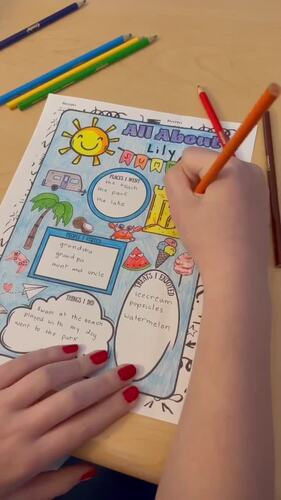 All About
Lily
PLACES I WENT
the beach
the park
the lake
grandma
grandpa
aunt and uncle
TREATS I ENJOYED
icecream
popsicles
watermelon
THINGS I DID
swam at the beach
played with my dog
went to the park